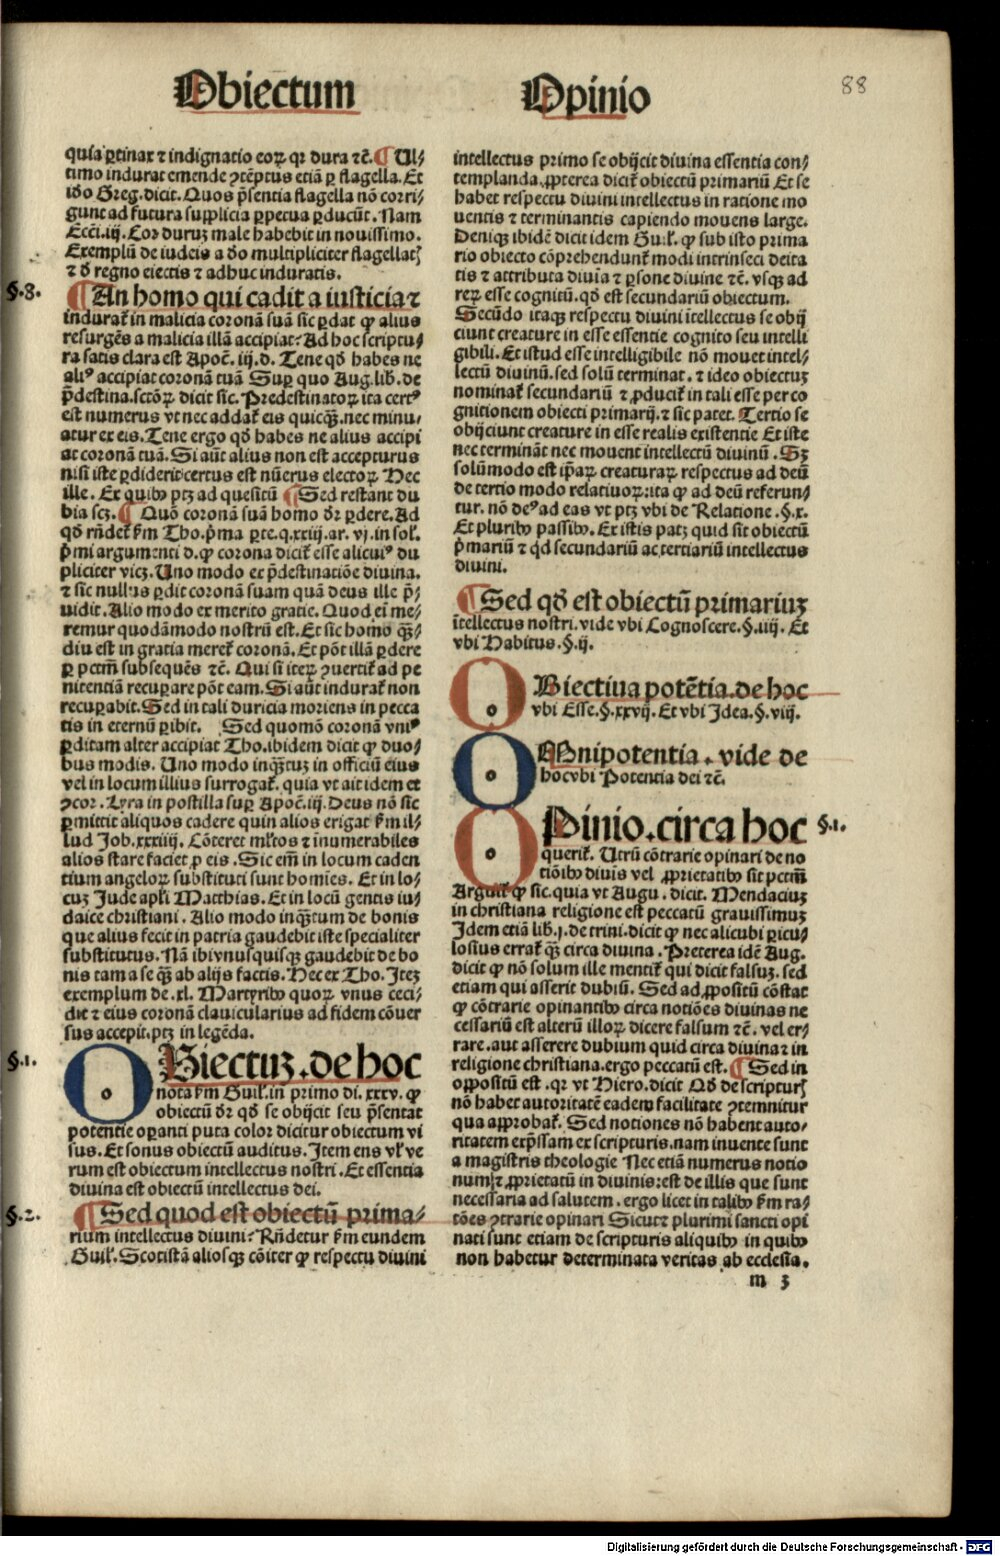 Obiectum
Opinio
88
quia ꝑtinax ⁊ indignatio eoꝝ qꝛ dura ⁊c̃. ¶ Ul⸗
timo indurat emende ꝯtẽptus etiã ꝑ flagella. Et
iđo Greg. dicit. Quos p̃sentia flagella nõ corri⸗
gunt ad futura supplicia ꝑpetua ꝑducũt. Nam
Ecci. iij. Cor duruꝫ male habebit in nouissimo.
Exemplũ de iudeis a đo multipliciter flagellatꝭ
⁊ đ regno eiectis ⁊ adhuc induratis.
§.8.
¶ An homo qui cadit a iusticia ⁊
induraꝉ in malicia coronã suã sic ꝑdat ꝙ alius
resurgẽs a malicia illã accipiat? Ad hoc scriptu⸗
ra satis clara est Apoc̃. iij. d. Tene qđ habes ne
aliꝰ accipiat coronã tuã Suꝑ quo Aug. lib. de
p̃destina. sctõꝝ dicit sic. Predestinatoꝝ ita certꝰ
est numerus vt nec addaꝉ eis quicqꝫ. nec minu⸗
atur ex eis. Tene ergo qđ habes ne alius accipi
at coronã tuã. Si aũt alius non est accepturus
nisi iste ꝑdiderit: certus est nũerus electoꝝ Hec
ille. Ex quibꝰ ptꝫ ad quesitũ ¶ Sed restant du
bia scꝫ. ¶ Quõ coronã suã homo đr ꝑdere. Ad
qđ rñdeꝉ ẜm Tho. p̃ma ꝑte. q. xxiij. ar. vj. in sol̃.
p̃mi argumenti d. ꝙ corona diciꝉ esse alicuiꝰ du
pliciter vicꝫ. Uno modo ex p̃destinatiõe diuina.
⁊ sic nullus ꝑdit coronã suam quã deus ille p̃⸗
uidit. Alio modo ex merito gratie. Quod ei̅ me⸗
remur quodãmodo nostrũ est. Et sic homo qꝫ⸗
diu est in gratia mereꝉ coronã. Et põt illã ꝑdere
ꝑ pctm̃ subsequẽs ⁊c̃. Qui si iteꝝ ꝯuertiꝉ ad pe
nitentiã recuperare põt eam. Si aũt induraꝉ non
recuꝑabit. Sed in tali duricia moriens in pecca
tis in eternũ ꝑibit. Sed quomõ coronã vniꝰ
ꝑditam alter accipiat Tho. ibidem dicit ꝙ duo⸗
bus modis. Uno modo inqꝫtuꝫ in officiũ eius
vel in locum illius surrogaꝉ. quia vt ait idem et
ꝯcor. Lyra in postilla suꝑ Apoc̃. iij. Deus nõ sic
ꝑmittit aliquos cadere quin alios erigat ẜm il⸗
lud Job. xxxiiij. Cõteret ml̃tos ⁊ inumerabiles
alios stare faciet ꝓ eis. Sic em̃ in locum caden
tium angeloꝝ substituti sunt homĩes. Et in lo⸗
cuꝫ Jude apl̃i Matthias. Et in locũ gentis iu⸗
daice christiani. Alio modo inqꝫtum de bonis
que alius fecit in patria gaudebit iste specialiter
substitutus. Nã ibi vnusquisqꝫ gaudebit de bo
nis tam a se qꝫ ab alijs factis. Hec ex Tho. Iteꝫ
exemplum de. xl. Martyribꝰ quoꝝ vnus ceci⸗
dit ⁊ eius coronã clauicularius ad fidem cõuer
sus accepit. ptꝫ in legẽda.
§.1.
OBiectuꝫ. de hoc
nota ẜm Guil̃. in primo di. xxxv. ꝙ
obiectũ đr qđ se obijcit seu p̃sentat
potentie oꝑanti puta color dicitur obiectum vi
sus. Et sonus obiectũ auditus. Item ens vl̃ ve
rum est obiectum intellectus nostri. Et essentia
diuina est obiectũ intellectus dei.
§.2.
¶ Sed quod est obiectũ prima⸗
rium intellectus diuini? Rñdetur ẜm eundem
Guil̃. Scotistã aliosqꝫ cõiter ꝙ respectu diuini
intellectus primo se obijcit diuina essentia con⸗
templanda. ꝓpterea diciꝉ obiectũ primariũ Et se
habet respectu diuini intellectus in ratione mo
uentis ⁊ terminantis capiendo mouens large.
Deniqꝫ ibidẽ dicit idem Guil̃. ꝙ sub isto prima
rio obiecto cõprehendunꝉ modi intrinseci deita
tis ⁊ attributa diuĩa ⁊ ꝑsone diuine ⁊c̃. vsqꝫ ad
reꝝ esse cognitũ. qđ est secundariũ obiectum.
Secũdo itaqꝫ respectu diuini ĩtellectus se obij
ciunt creature in esse essentie cognito seu intelli
gibili. Et istud esse intelligibile nõ mouet intel⸗
lectũ diuinũ. sed solũ terminat. ⁊ ideo obiectuꝫ
nominaꝉ secundariũ ⁊ ꝓduciꝉ in tali esse per co
gnitionem obiecti primarij. ⁊ sic patet. Tertio se
obijciunt creature in esse realis existentie Et iste
nec terminãt nec mouent intellectũ diuinũ. Sꝫ
solũmodo est ip̃aꝝ creaturaꝝ respectus ad deũ
de tertio modo relatiuoꝝ: ita ꝙ ad deũ referun⸗
tur. nõ deꝰ ad eas vt ptꝫ vbi de Relatione. §. x.
Et pluribꝰ passibꝰ. Et istis patꝫ quid sit obiectũ
p̃mariũ ⁊ qđ secundariũ ac tertiariũ intellectus
diuini.
¶ Sed qđ est obiectũ primariuꝫ
ĩtellectus nostri. vide vbi Cognoscere. §. iiij. Et
vbi Habitus. §. ij.
OBiectiua potẽtia. de hoc
vbi Esse. §. xxvij. Et vbi Idea. §. viij.
OMnipotentia. vide de
hoc vbi Potentia dei ⁊c̃.
OPinio. circa hoc
§.1.
queriꝉ. Utrũ cõtrarie opinari de no
tiõibꝰ diuis vel ꝓprietatibꝰ sit pctm̃
Arguiꝉ ꝙ sic. quia vt Augu. dicit. Mendaciuꝫ
in christiana religione est peccatũ grauissimuꝫ
Idem etiã lib. j. de trini. dicit ꝙ nec alicubi ꝑicu⸗
losius erraꝉ qꝫ circa diuina. Preterea idẽ Aug.
dicit ꝙ nõ solum ille mentiꝉ qui dicit falsuꝫ. sed
etiam qui asserit dubiũ. Sed ad ꝓpositũ cõstat
ꝙ cõtrarie opinantibꝰ circa notiões diuinas ne
cessariũ est alterũ illoꝝ dicere falsum ⁊c̃. vel er⸗
rare. aut asserere dubium quid circa diuina ⁊ in
religione christiana. ergo peccatũ est. ¶ Sed in
oppositũ est. qꝛ vt Hiero. dicit Qđ de scripturꝭ
nõ habet autoritatẽ eadem facilitate ꝯtemnitur
qua approbaꝉ. Sed notiones nõ habent auto⸗
ritatem exp̃ssam ex scripturis. nam inuente sunt
a magistris theologie Nec etiã numerus notio
num ⁊ ꝓprietatũ in diuinis: est de illis que sunt
necessaria ad salutem. ergo licet in talibꝰ ẜm ra⸗
tões ꝯtrarie opinari Sicut ⁊ plurimi sancti opi
nati sunt etiam de scripturis aliquibꝰ in quibꝰ
non habetur determinata veritas ab ecclesia.
m 3
Digitalisierung gefördert durch die Deutsche Forschungsgemeinschaft - DFG